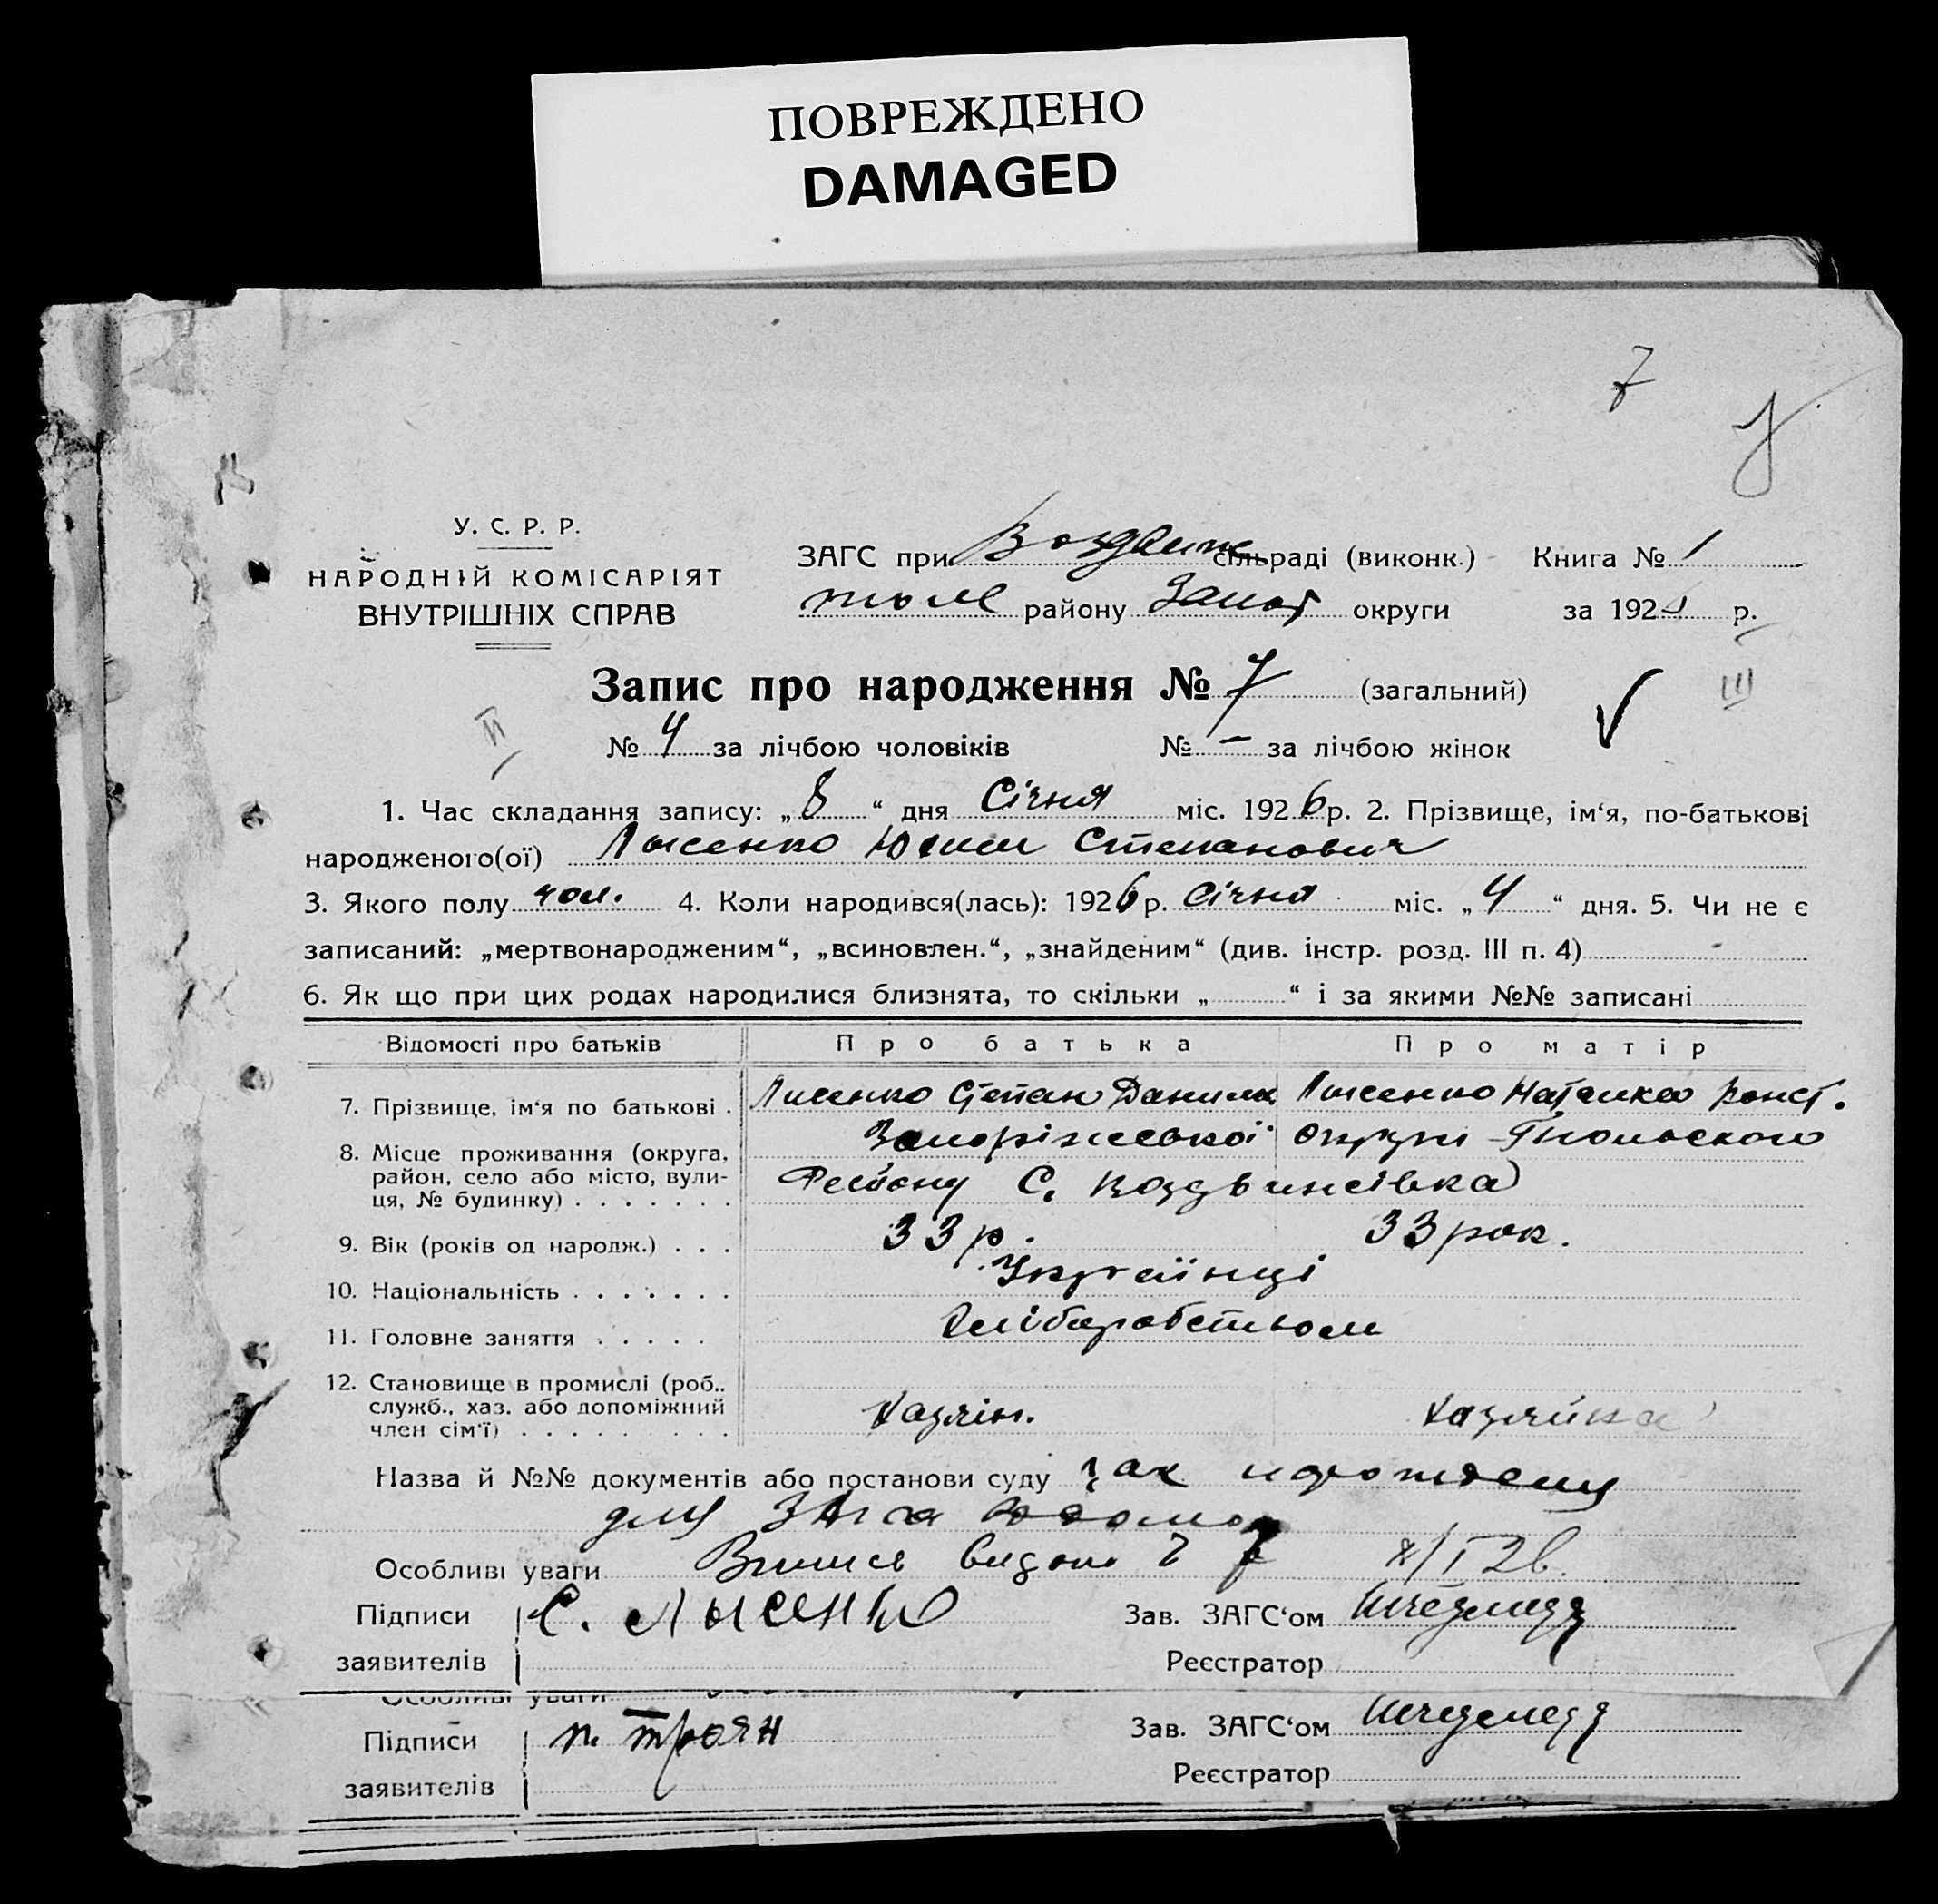 ПОВРЕЖДЕНО
DAMAGED
7
У. С. Р. Р.
НАРОДНІЙ КОМІСАРІЯТ
ВНУТРІШНІХ СПРАВ
ЗАГС при Воздвиж сільраді (виконк.) Книга № 1
району Запор округи за 192 р.
Запис про народження № 7 (загальний)
II
III
№ 4 за лічбою чоловіків № – за лічбою жінок
1. Час складання запису: „8“ дня Січня міс. 1926 р. 2. Прізвище, ім‘я, по-батькові
народженого(ої) Лысенко Степанович
3. Якого полу чол. 4. Коли народився(лась): 1926 р. Січня міс. „4“ дня. 5. Чи не є
записаний: „мертвонародженим“, „всиновлен.“, „знайденим“ (див. інстр. розд. III п. 4)
6. Як що при цих родах народилися близнята, то скільки „ “ і за якими №№ записані
Відомості про батьків Про батька Про матір
7. Прізвище, ім‘я по батькові . Лисенко Степан Данилов Лысенко Наталка Конст.
8. Місце проживання (округа,
район, село або місто, вули-
ця, № будинку) . . . . . . .
Запоріжської округи
С. Воздвижсівка
9. Вік (років од народж.) . . . 33 р. 33 рок.
10. Національність . . . . . . . Українці
11. Головне заняття . . . . . Хліборобством
12. Становище в промислі (роб.,
служб., хаз. або допоміжний
член сім‘ї) . . . . . . . . .
Хазяін. Хазяйка
Назва й №№ документів або постанови суду
для ЗАГСа
Особливі уваги Випись видана 7 8/I 26.
Підписи С. Лысенко Зав. ЗАГС‘ом
заявителів Реєстратор
Особливі уваги
Підписи п. троян Зав. ЗАГС‘ом
заявителів Реєстратор